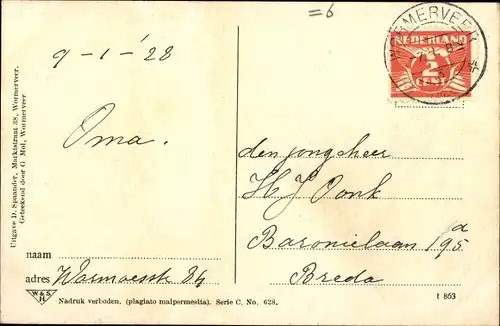 =6
WORMERVEER
NEDERLAND
½
CENT
9-1-'28
Oma.
den jongeheer
H J Vonk
Baronielaan 195a
Breda
Uitgave D. Spaander, Marktstraat 38, Wormerveer.
Geteekend door G. Mol, Wormerveer
naam
adres Warmoesstr 84
W & S
H
Nadruk verboden. (plagiato malpermesita). Serie C. No. 628.
t 853